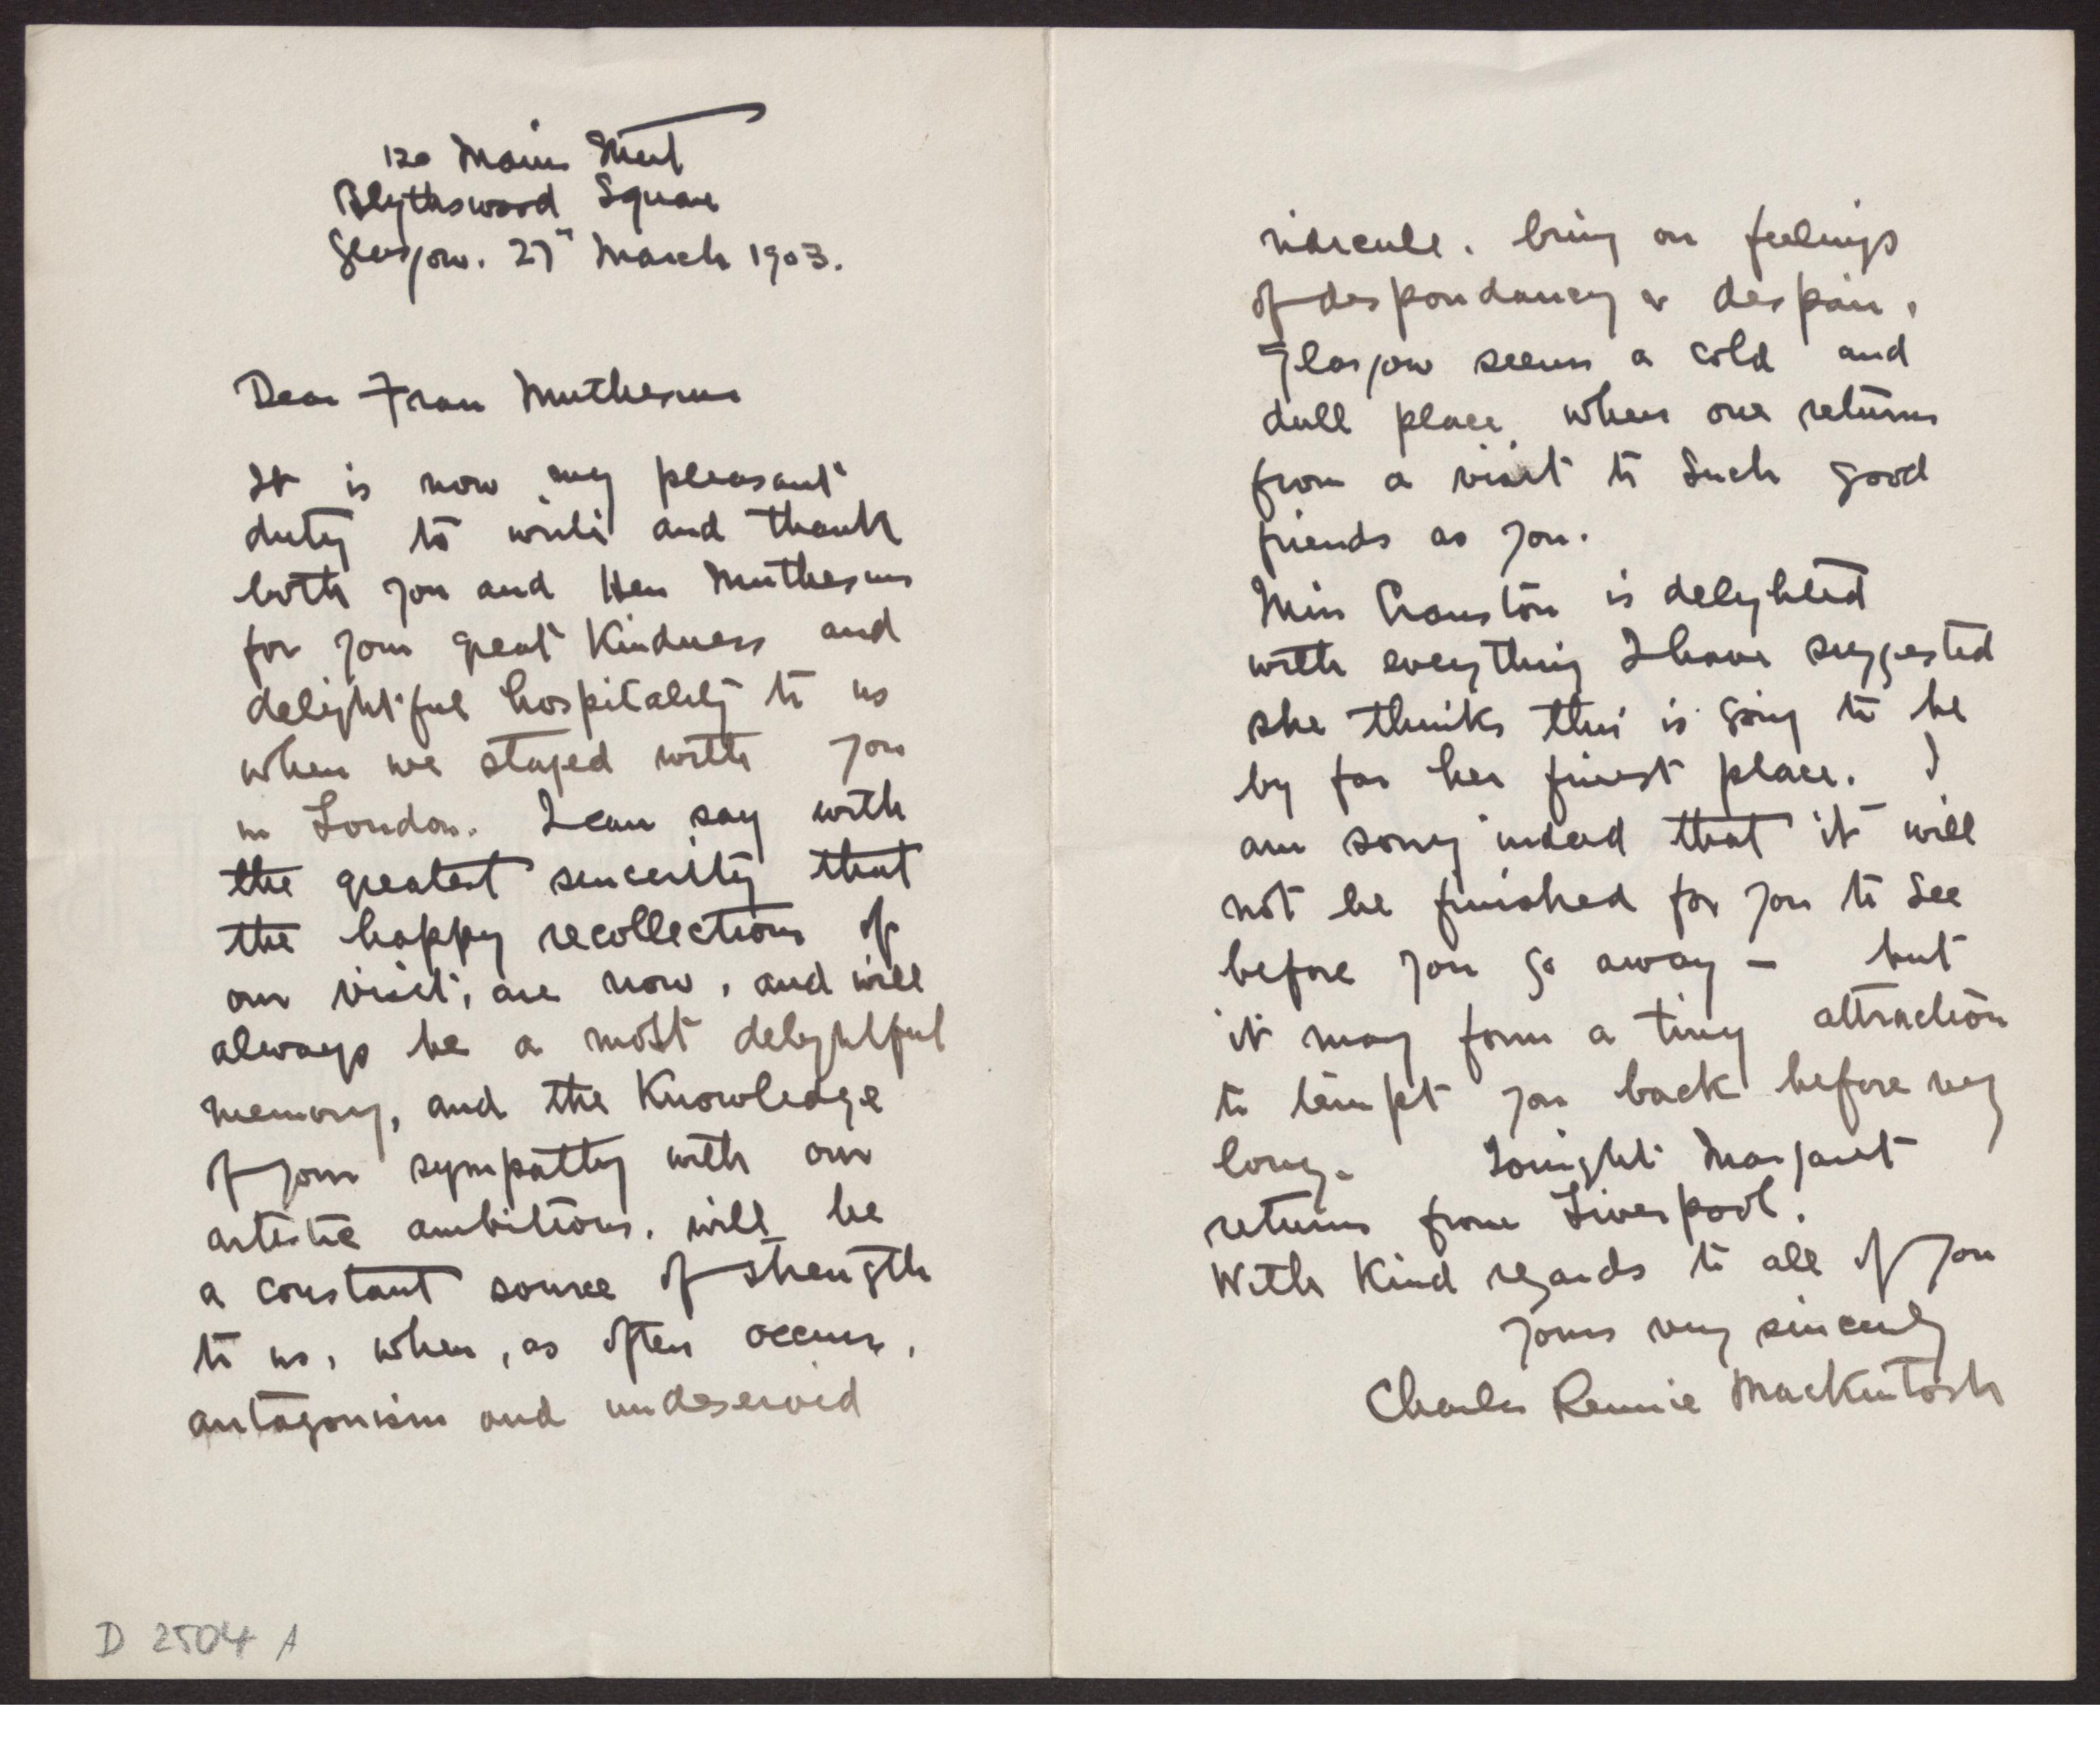 120 Mains Street
Blythswood Square
Glasgow. 27" March 1903.
Dear Frau Muthesius
It is now my pleasant
duty to write and thank
both you and Herr Muthesius
for your great Kindness and
delightful hospitality to us
when we stayed with you
in London. I can say with
the greatest sincerity that
the happy recollections of
our visit, are now, and will
always be a most delightful
memory, and the Knowledge
of your sympathy with our
artistic ambitions. will be
a constant source of strength
to us, when, as often occurs,
antagonism and undeserved
ridicule. bring on feelings
of despondancy & despair.
Glasgow seems a cold and
dull place, when one returns
from a visit to such good
friends as you.
Miss Cranston is delighted
with everything I have suggested
she thinks this is going to be
by far her finest place. I
am sorry indeed that it will
not be finished for you to see
before you go away – but
it may form a tiny attraction
to tempt you back before very
long. Tonight Margaret
returns from Liverpool.
With Kind regards to all of you
Yours very sincerely
Charles Rennie Mackintosh
D 2504 A